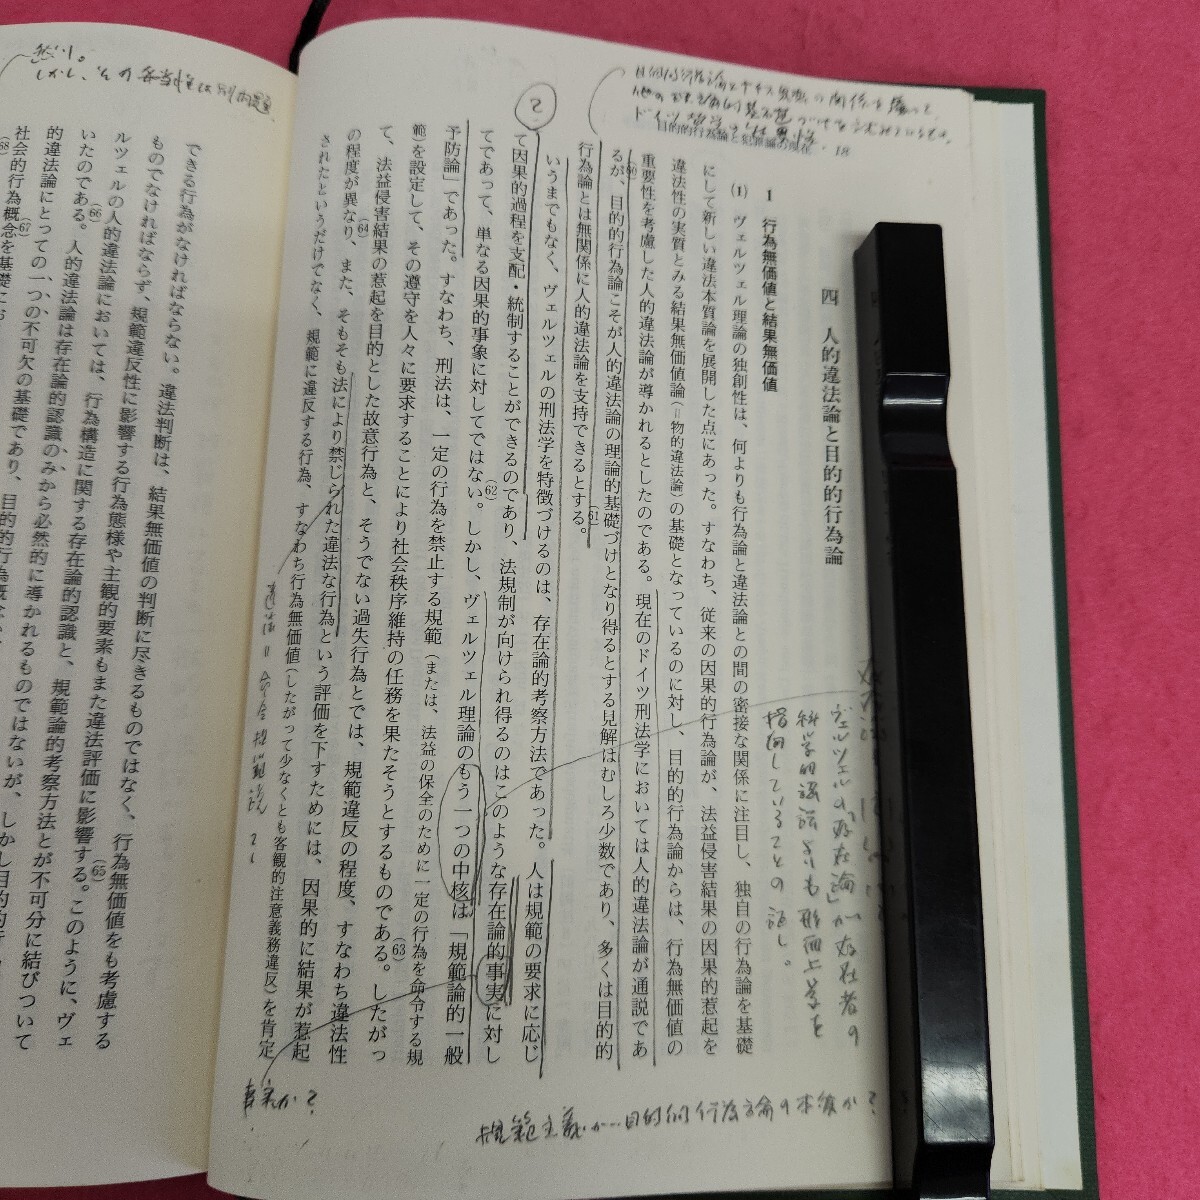 目的的行為論と犯罪論の現在 18
四 人的違法論と目的的行為論
1 行為無価値と結果無価値
(1) ヴェルツェル理論の独創性は、何よりも行為論と違法論との間の密接な関係に注目し、独自の行為論を基礎
にして新しい違法本質論を展開した点にあった。すなわち、従来の因果的行為論が、法益侵害結果の因果的惹起を
違法性の実質とみる結果無価値論(=物的違法論)の基礎となっているのに対し、目的的行為論からは、行為無価値の
重要性を考慮した人的違法論が導かれるとしたのである。現在のドイツ刑法学においては人的違法論が通説であ
るが、(60)目的的行為論こそが人的違法論の理論的基礎づけとなり得るとする見解はむしろ少数であり、多くは目的的
行為論とは無関係に人的違法論を支持できるとする。(61)
いうまでもなく、ヴェルツェルの刑法学を特徴づけるのは、存在論的考察方法であった。人は規範の要求に応じ
て因果的過程を支配・統制することができるのであり、法規制が向けられ得るのはこのような存在論的事実に対し
てであって、単なる因果的事象に対してではない。(62)しかし、ヴェルツェル理論のもう一つの中核は「規範論的一般
予防論」であった。すなわち、刑法は、一定の行為を禁止する規範(または、法益の保全のために一定の行為を命令する規
範)を設定して、その遵守を人々に要求することにより社会秩序維持の任務を果たそうとするものである。(63)したがっ
て、法益侵害結果の惹起を目的とした故意行為と、そうでない過失行為とでは、規範違反の程度、すなわち違法性
の程度が異なり、(64)また、そもそも法により禁じられた違法な行為という評価を下すためには、因果的に結果が惹起
されたというだけでなく、規範に違反する行為、すなわち行為無価値(したがって少なくとも客観的注意義務違反)を肯定
できる行為がなければならない。違法判断は、結果無価値の判断に尽きるものではなく、行為無価値をも考慮する
ものでなければならず、規範違反性に影響する行為態様や主観的要素もまた違法評価に影響する。(65)このように、ヴェ
ルツェルの人的違法論においては、行為構造に関する存在論的認識と、規範論的考察方法とが不可分に結びついて
いたのである。(66)人的違法論は存在論的認識のみから必然的に導かれるものではないが、しかし目的的行
的違法論にとっての一つの不可欠の基礎であり、(67)目的的行為概念
社会的行為概念を基礎にお
(68)
ヴェルツェルの「存在論」が存在者の
科学的認識よりも形而上学を
指向していることの証し。
規範主義が…目的的行為論の本質か?
事実か?
違法=命令規範説?
?
しかし、その妥当性は別問題